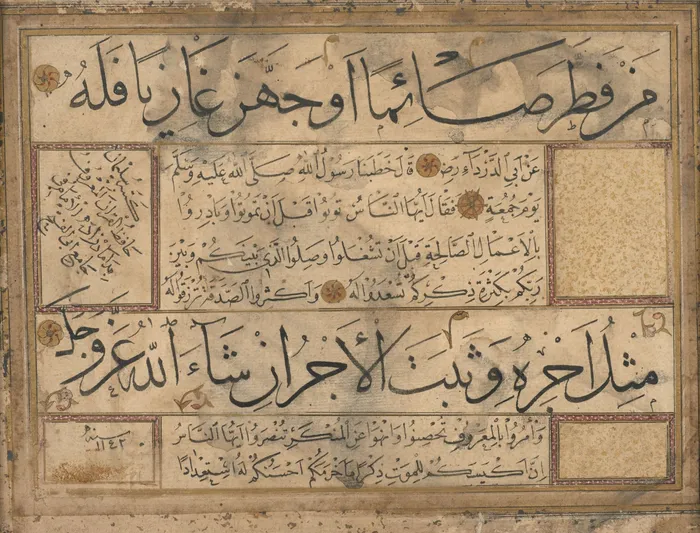 من فطر صائما او جهز غازيا فله
عن ابي الدرداء رض قال خطبنا رسول الله صلى الله عليه وسلم
يوم جمعة فقال ايها الناس توبوا قبل ان تموتوا وبادروا
بالاعمال الصالحة قبل ان تشغلوا وصلوا الذي بينكم وبين
ربكم بكثرة ذكركم تسعدوا له واكثروا الصدقة ترزقوا له
مثل اجره وثبت الأجر ان شاء الله عز وجل
وأمروا بالمعروف تحصنوا وانهوا عن المنكر تنصروا ايها الناس
ان اكيسكم للموت ذكرا واحزمكم احسنكم له استعدادا
سنة
١١٤٢